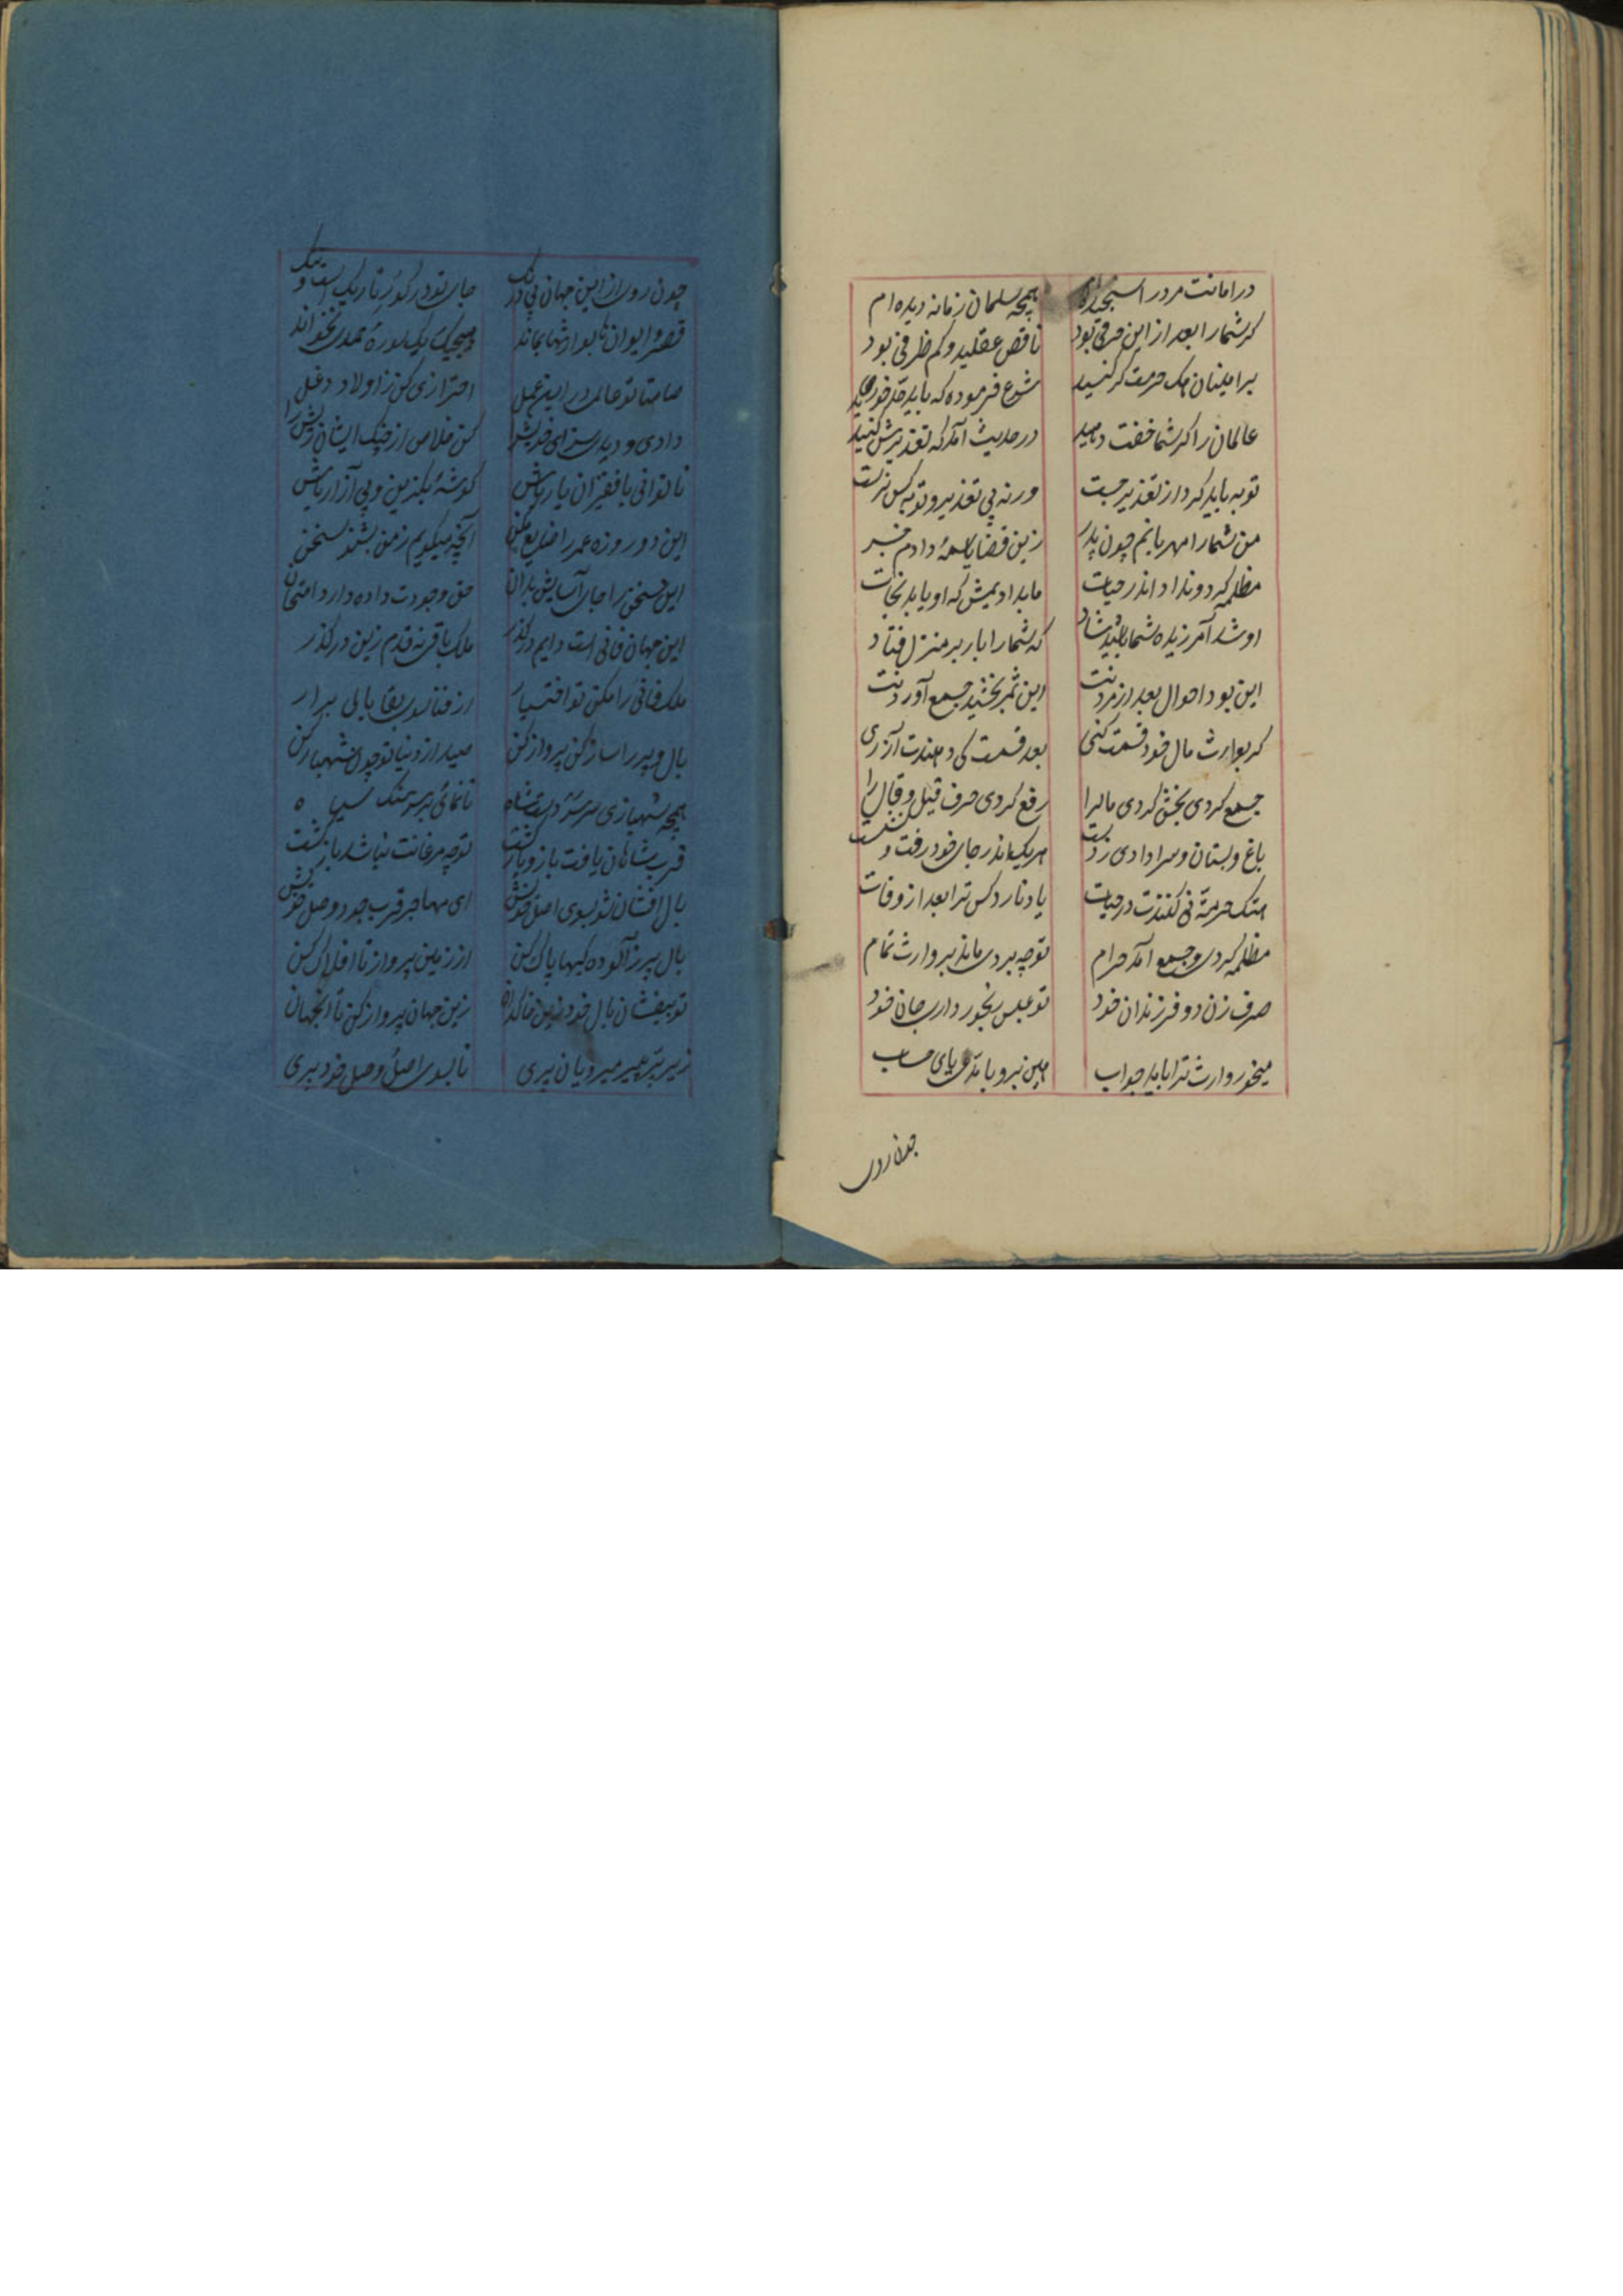 در امانت مرد را سنجیده‌ام همچه سلمان زمانه دیده‌ام
کر شما را بعد از این حرفی بود ناقص عقلید و کم ظرفی بود
بر امینان هتک حرمت کر کنید شرع فرموده که باید حد خورید
عالمان را کر شما خفت دهید در حدیث آمد که تعذیرش کنید
توبه باید کرد از تعذیر جست ورنه بی تعذیر و توبه کس نرست
من شما را مهربانم چون پدر زین قضایا همهٔ دادم خبر
مظلمه کرد و نداد اندر حیات ما بدادیمش که او یابد نجات
او شد آمرزیده شما باشید شاد که شما را بار بر منزل فتاد
این بود احوال بعد از مردنت این ثمر بخشید جمع آوردنت
کر بوارث مال خود قسمت کنی بعد قسمت کی دهندت ارزنی
جمع کردی بخش کردی مال را رفع کردی حرف قیل و قال را
باغ و بستان و سرا دادی ز دست هر یک اندر جای خود رفت و نشست
هتک حرمت می کنندت در حیات یاد نارد کس ترا بعد از وفات
مظلمه کردی و جمع آمد حرام تو چه بردی ماند بر وارث تمام
صرف زن و فرزندان خود تو عبس رنجور داری جان خود
میخورد وارث ترا باید جواب هین برو با پای حساب
چون روی
چون روی از این جهان بی درنک جای تو در کور تاریک است و تنک
قصر و ایوان ها بوارثها بماند هیچیک یک سورهٔ حمدی نخواند
صامتا تو عالمی در این عمل احترازی کن ز اولاد دغل
دادی و دیدی سزای خویش را کن خلاص از چنک ایشان ریش را
تا توانی با فقیران یار باش کوشهٔ بکزین و بی آزار باش
این دو روزه عمر را ضایع مکن آنچه میکویم ز من بشنو سخن
این سخن را جای آسایش بدان حق وجودت داده دارد امتحان
این جهان فانی است دایم در کذر ملک باقی نه قدم زین در کذر
ملک فانی را مکن تو اختیار از فنا سوی بقا بالی برار
بال و پر را ساز کن پرواز کن صید از دنیا تو چون شهباز کن
همچه شهبازی سر دست شاه تا نمائی بر سر سنک سیاه
قرب شاهان یافت باز و باز کشت تو چه مرغانت نباشد بازکشت
بال افشان شو بسوی اصل خویش ای مهاجر قرب جد و وصل خویش
بال پر ز آلوده کیها پاک کن از زمین پرواز تا افلاک کن
تو بیفشان بال خود زین خاکدان زین جهان پرواز کن تا آنجهان
زیر پر میر میرویان پری تا بسوی اصل و وصل خود بری